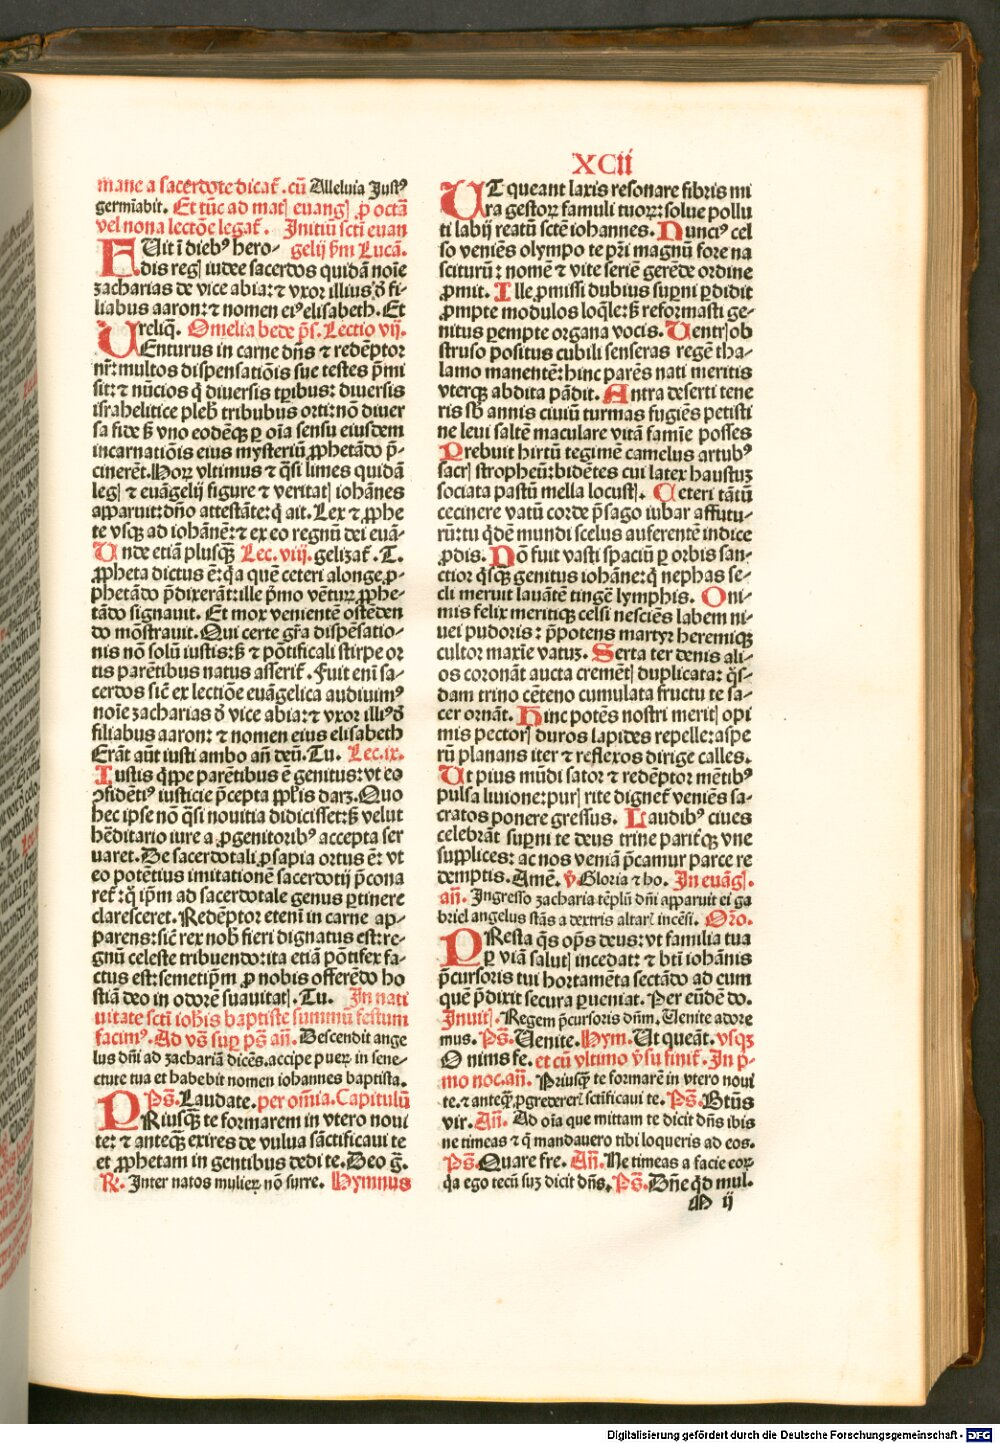 XCII
mane a sacerdote dicat̄. cū Alleluia Justꝰ
germīabit. Et tūc ad matꝭ euangꝭ ꝓ octā
vel nona lectōe legat̄. Initiū scti euan
FUit ī diebꝰ hero- gelij ẜm Lucā.
dis regꝭ iudee sacerdos quidā noīe
zacharias de vice abia: ⁊ vxor illius d̓ fi-
liabus aaron: ⁊ nomen eiꝰ elisabeth. Et
reliq̄. Omelia bede p̄s. Lectio vij.
UEnturus in carne dn̄s ⁊ redēptor
nr̄: multos dispensatiōis sue testes p̄mi
sit: ⁊ nūcios q̓ diuersis tꝑibus: diuersis
israhelitice pleb̓ tribubus orti: nō diuer
sa fide ẜ vno eodēqꝫ ꝑ oīa sensu eiusdem
incarnatiōis eius mysteriū ꝓphetādo p̄-
cinerēt. Horꝝ vltimus ⁊ q̄si limes quidā
legꝭ ⁊ euāgelij figure ⁊ veritatꝭ iohānes
apparuit: dn̄o attestāte: q̓ ait. Lex ⁊ ꝓphe
te vsqꝫ ad iohānē: ⁊ ex eo regnū dei euā-
Unde etiā plusqꝫ Lec. viii. gelizat̄. T.
ꝓpheta dictus ē: q̓a quē ceteri alonge ꝓ-
phetādo p̄dixerāt: ille p̄mo vētuꝝ ꝓphe-
tādo signauit. Et mox venientē ostēden
do mōstrauit. Qui certe gr̄a dispēsatio-
nis nō solū iustis: ẜ ⁊ pōtificali stirpe or
tis parētibus natus asserit̄. Fuit enī sa-
cerdos sic̄ ex lectiōe euāgelica audiuimꝰ
noīe zacharias d̓ vice abia: ⁊ vxor illiꝰ d̓
filiabus aaron: ⁊ nomen eius elisabeth
Erāt aūt iusti ambo añ deū. Tu. Lec. ix.
Iustis q̓ppe parētibus ē genitus: vt eo
ꝯfidētiꝰ iusticie p̄cepta ppl̓is darꝫ. Quo
hec ipse nō q̄si nouitia didicisset: ẜ velut
hēditario iure a ꝓgenitoribꝰ accepta ser
uaret. De sacerdotali ꝓsapia ortus ē: vt
eo potētius imitationē sacerdotij p̄cona
ret̄: q̓ ip̄m ad sacerdotale genus ꝑtinere
claresceret. Redēptor etenī in carne ap-
parens: sic̄ rex nob̓ fieri dignatus est: re-
gnū celeste tribuendo: ita etiā pōtifex fa-
ctus est: semetip̄m ꝓ nobis offerēdo ho
stiā deo in odorē suauitatꝭ. Tu. In nati
uitate scti ioh̄is baptiste summū festum
facimꝰ. Ad vs̄ suꝑ ps̄ añ. Descendit ange
lus dn̄i ad zachariā dicēs. accipe pueꝝ in sene-
ctute tua et habebit nomen iohannes baptista.
Ps̄. Laudate. per om̄ia. Capitulū
PRiusqꝫ te formarem in vtero noui
te: ⁊ anteqꝫ exires de vulua sāctificaui te
et ꝓphetam in gentibus dedi te. Deo ḡ.
R̷. Inter natos mulieꝝ nō surre. Hymnus
UT queant laxis resonare fibris mi
ra gestoꝝ famuli tuoꝝ: solue pollu
ti labij reatū sctē iohannes. Nunciꝰ cel
so veniēs olympo te pr̄i magnū fore na
sciturū: nomē ⁊ vite seriē gerēde ordine
ꝓmit. Ille ꝓmissi dubius suꝑni ꝑdidit
ꝓmpte modulos loq̄le: ẜ reformasti ge-
nitus ꝑempte organa vocis. Uentrꝭ ob
struso positus cubili senseras regē tha-
lamo manentē: hinc parēs nati meritis
vterqꝫ abdita pādit. Antra deserti tene
ris sb̓ annis ciuiū turmas fugiēs petisti
ne leui saltē maculare vitā famīe posses
Prebuit hirtū tegimē camelus artubꝰ
sacrꝭ stropheū: bidētes cui latex haustuꝫ
sociata pastū mella locustꝭ. Ceteri tātū
cecinere vatū corde p̄sago iubar affutu-
rū: tu q̓dē mundi scelus auferentē indice
ꝓdis. Nō fuit vasti spaciū ꝑ orbis san-
ctior q̄sqꝫ genitus iohāne: q̓ nephas se-
cli meruit lauātē tingē lymphis. O ni-
mis felix meritiqꝫ celsi nesciēs labem ni-
uei pudoris: p̄potens martyr heremiqꝫ
cultor maxīe vatuꝫ. Serta ter denis ali-
os coronāt aucta cremētꝭ duplicata: q̄s-
dam trino cēteno cumulata fructu te sa-
cer ornāt. Hinc potēs nostri meritꝭ opi
mis pectorꝭ duros lapides repelle: aspe
rū planans iter ⁊ reflexos dirige calles.
Ut pius mūdi sator ⁊ redēptor mētibꝰ
pulsa liuione: purꝭ rite dignet̄ veniēs sa-
cratos ponere gressus. Laudibꝰ ciues
celebrāt suꝑni te deus trine parit̓qꝫ vne
supplices: ac nos veniā p̄camur parce re
demptis. Amē. v̓ Gloria ⁊ ho. In euāgꝭ.
añ. Ingresso zacharia tēplū dn̄i apparuit ei ga
briel angelus stās a dextris altarꝭ incēsi. Or̄o.
PResta q̄s op̄s deus: vt familia tua
ꝑ viā salutꝭ incedat: ⁊ bt̄i iohānis
p̄cursoris tui hortamēta sectādo ad eum
quē p̄dixit secura ꝑueniat. Per eūdē do.
Inuitꝭ. Regem p̄cursoris dn̄m, Uenite adore
mus. Ps̄. Uenite. Hym. Ut queāt. vsqꝫ
O nimis fe. et cū vltimo v̓su finit̄. In p̄-
mo noc. añ. Priusqꝫ te formarē in vtero noui
te. ⁊ anteqꝫ ꝓgredererꝭ sctificaui te. Ps̄. Btūs
vir. Añ. Ad oīa que mittam te dicit dn̄s ibis
ne timeas ⁊ q̄ mandauero tibi loqueris ad eos.
Ps̄. Quare fre. Añ. Ne timeas a facie eoꝝ
q̓a ego tecū suꝫ dicit dn̄s. Ps̄. Dn̄e q̓d mul.
M ij
Digitalisierung gefördert durch die Deutsche Forschungsgemeinschaft - DFG